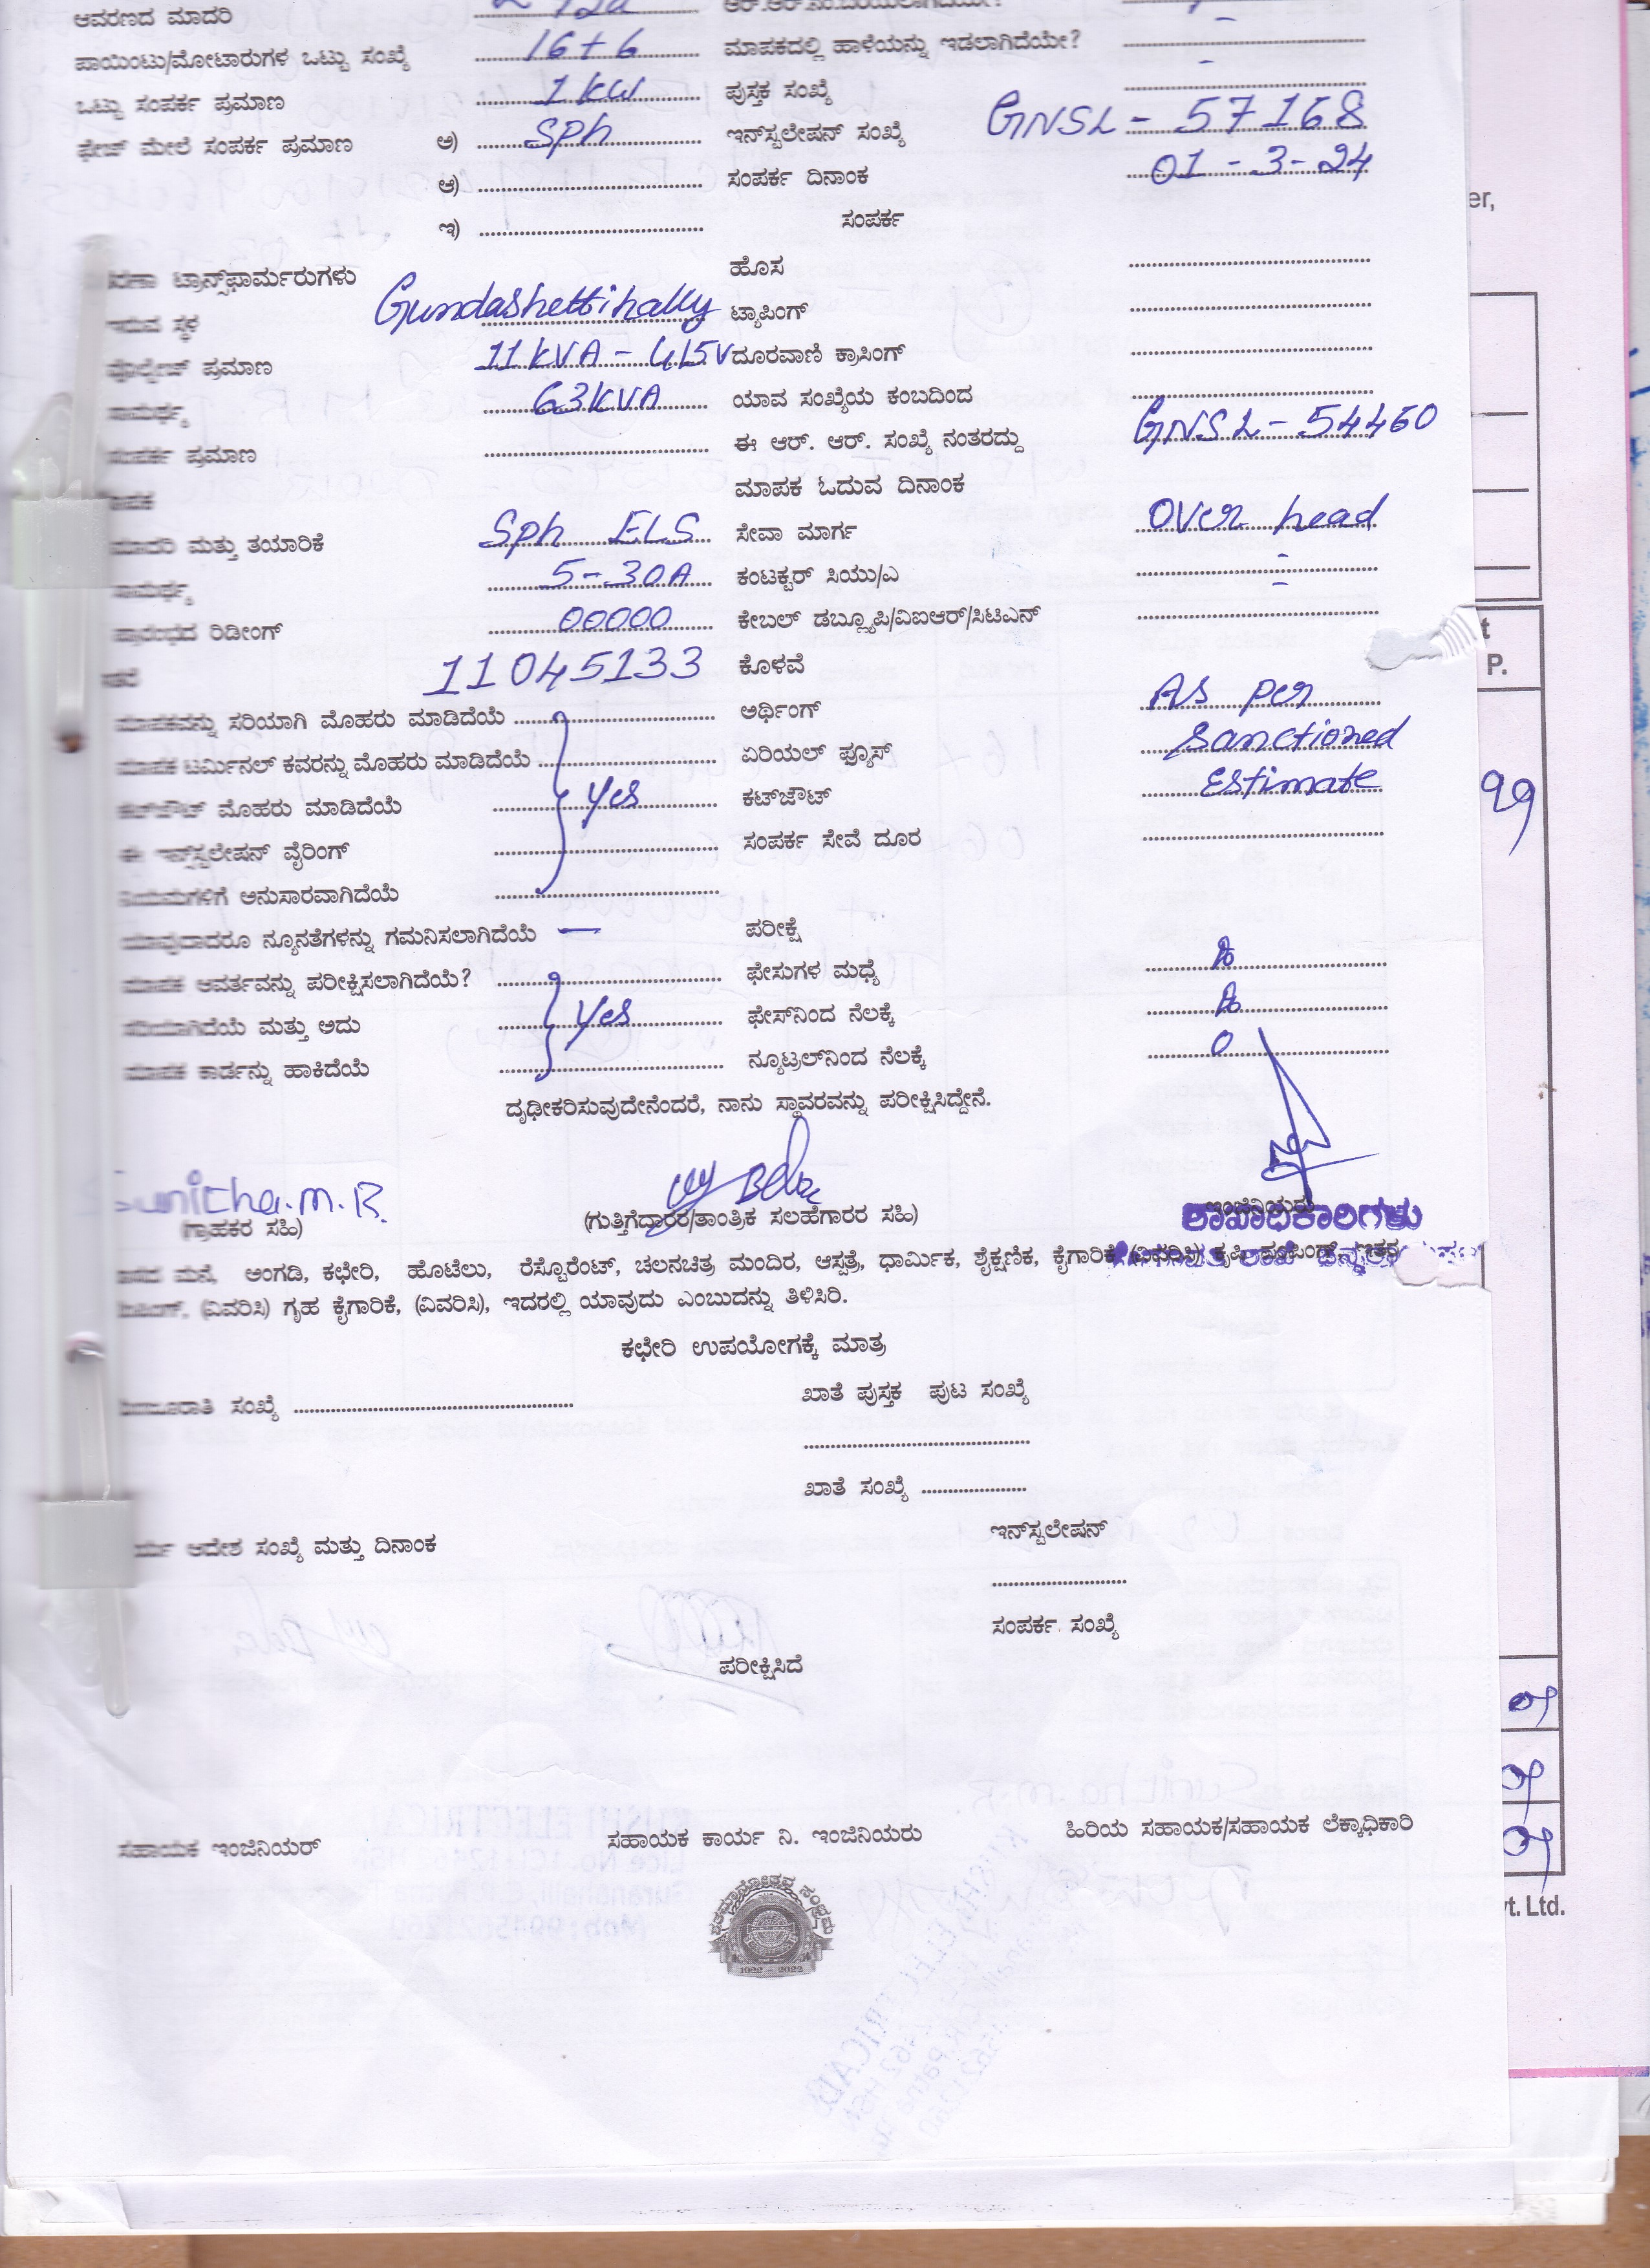 ಆವರಣದ ಮಾದರಿ
ಪಾಯಿಂಟು/ಮೋಟಾರುಗಳ ಒಟ್ಟು ಸಂಖ್ಯೆ 16+6 ಮಾಪಕದಲ್ಲಿ ಹಾಳೆಯನ್ನು ಇಡಲಾಗಿದೆಯೇ? -
ಒಟ್ಟು ಸಂಪರ್ಕ ಪ್ರಮಾಣ 1 KW ಪುಸ್ತಕ ಸಂಖ್ಯೆ -
ಫೇಜ್ ಮೇಲೆ ಸಂಪರ್ಕ ಪ್ರಮಾಣ ಅ) Sph ಇನ್‌ಸ್ಟಲೇಷನ್ ಸಂಖ್ಯೆ GNSL - 57168
ಆ) ಸಂಪರ್ಕ ದಿನಾಂಕ 01-3-24
ಇ) ಸಂಪರ್ಕ
ಟ್ರಾನ್ಸ್‌ಫಾರ್ಮರುಗಳು ಹೊಸ
ಇರುವ ಸ್ಥಳ Gundashettihally ಟ್ಯಾಪಿಂಗ್
ವೋಲ್ಟೇಜ್ ಪ್ರಮಾಣ 11 KVA - 415V ದೂರವಾಣಿ ಕ್ರಾಸಿಂಗ್
ಸಾಮರ್ಥ್ಯ 63 KVA ಯಾವ ಸಂಖ್ಯೆಯ ಕಂಬದಿಂದ
ಸಂಪರ್ಕ ಪ್ರಮಾಣ ಈ ಆರ್. ಆರ್. ಸಂಖ್ಯೆ ನಂತರದ್ದು GNSL - 54460
ಮಾಪಕ ಓದುವ ದಿನಾಂಕ
ಮಾದರಿ ಮತ್ತು ತಯಾರಿಕೆ Sph ELS ಸೇವಾ ಮಾರ್ಗ Over head
ಸಾಮರ್ಥ್ಯ 5-30A ಕಂಟಕ್ಟರ್ ಸಿಯು/ಎ -
ಪ್ರಾರಂಭದ ರಿಡೀಂಗ್ 00000 ಕೇಬಲ್ ಡಬ್ಲ್ಯೂಪಿ/ವಿಐಆರ್/ಸಿಟಿಎನ್ -
11045133 ಕೊಳವೆ
ಮಾಪಕವನ್ನು ಸರಿಯಾಗಿ ಮೊಹರು ಮಾಡಿದೆಯೆ ಅರ್ಥಿಂಗ್ As per
ಮಾಪಕ ಟರ್ಮಿನಲ್ ಕವರನ್ನು ಮೊಹರು ಮಾಡಿದೆಯೆ ಏರಿಯಲ್ ಫ್ಯೂಸ್ Sanctioned
ಕಟ್‌ಔಟ್ ಮೊಹರು ಮಾಡಿದೆಯೆ Yes ಕಟ್‌ಔಟ್ Estimate
ಈ ಇನ್‌ಸ್ಟಲೇಷನ್ ವೈರಿಂಗ್ ಸಂಪರ್ಕ ಸೇವೆ ದೂರ
ನಿಯಮಗಳಿಗೆ ಅನುಸಾರವಾಗಿದೆಯೆ
ಯಾವುದಾದರೂ ನ್ಯೂನತೆಗಳನ್ನು ಗಮನಿಸಲಾಗಿದೆಯೆ — ಪರೀಕ್ಷೆ
ಮಾಪಕ ಆವರ್ತವನ್ನು ಪರೀಕ್ಷಿಸಲಾಗಿದೆಯೆ? ಫೇಸುಗಳ ಮಧ್ಯೆ
ಸರಿಯಾಗಿದೆಯೆ ಮತ್ತು ಅದು Yes ಫೇಸ್‌ನಿಂದ ನೆಲಕ್ಕೆ
ಮಾಪಕ ಕಾರ್ಡನ್ನು ಹಾಕಿದೆಯೆ ನ್ಯೂಟ್ರಲ್‌ನಿಂದ ನೆಲಕ್ಕೆ 0
ದೃಢೀಕರಿಸುವುದೇನೆಂದರೆ, ನಾನು ಸ್ಥಾವರವನ್ನು ಪರೀಕ್ಷಿಸಿದ್ದೇನೆ.
Sunitha.M.R.
(ಗ್ರಾಹಕರ ಸಹಿ) (ಗುತ್ತಿಗೆದಾರರ/ತಾಂತ್ರಿಕ ಸಲಹೆಗಾರರ ಸಹಿ) ಇಂಜಿನಿಯರು
ಶಾಖಾಧಿಕಾರಿಗಳು
ಮನೆ, ಅಂಗಡಿ, ಕಛೇರಿ, ಹೊಟೆಲು, ರೆಸ್ಟೊರೆಂಟ್, ಚಲನಚಿತ್ರ ಮಂದಿರ, ಆಸ್ಪತ್ರೆ, ಧಾರ್ಮಿಕ, ಶೈಕ್ಷಣಿಕ, ಕೈಗಾರಿಕೆ (ವಿವರಿಸಿ) ಕೃಷಿ ಪಂಪಿಂಗ್, ಇತರ
(ವಿವರಿಸಿ) ಗೃಹ ಕೈಗಾರಿಕೆ, (ವಿವರಿಸಿ), ಇದರಲ್ಲಿ ಯಾವುದು ಎಂಬುದನ್ನು ತಿಳಿಸಿರಿ.
ಕಛೇರಿ ಉಪಯೋಗಕ್ಕೆ ಮಾತ್ರ
ಸಂಖ್ಯೆ ಖಾತೆ ಪುಸ್ತಕ ಪುಟ ಸಂಖ್ಯೆ
ಖಾತೆ ಸಂಖ್ಯೆ
ಇನ್‌ಸ್ಟಲೇಷನ್
ಆದೇಶ ಸಂಖ್ಯೆ ಮತ್ತು ದಿನಾಂಕ
ಸಂಪರ್ಕ ಸಂಖ್ಯೆ
ಪರೀಕ್ಷಿಸಿದೆ
ಸಹಾಯಕ ಇಂಜಿನಿಯರ್ ಸಹಾಯಕ ಕಾರ್ಯ ನಿ. ಇಂಜಿನಿಯರು ಹಿರಿಯ ಸಹಾಯಕ/ಸಹಾಯಕ ಲೆಕ್ಕಾಧಿಕಾರಿ
ಶತಮಾನೋತ್ಸವ ಸಂಭ್ರಮ
1922 - 2022
er,
t
P.
99
vt. Ltd.